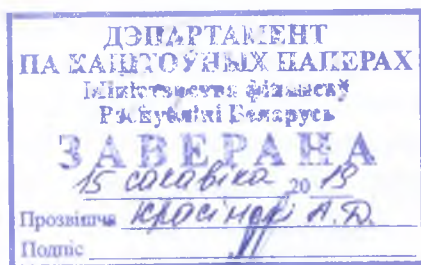 ДЭПАРТАМЕНТ
ПА КАШТОЎНЫХ ПАПЕРАХ
Міністэрства фінансаў
Рэспублікі Беларусь
ЗАВЕРАНА
15 сакавіка 2019
Прозвішча А.Д.
Подпіс